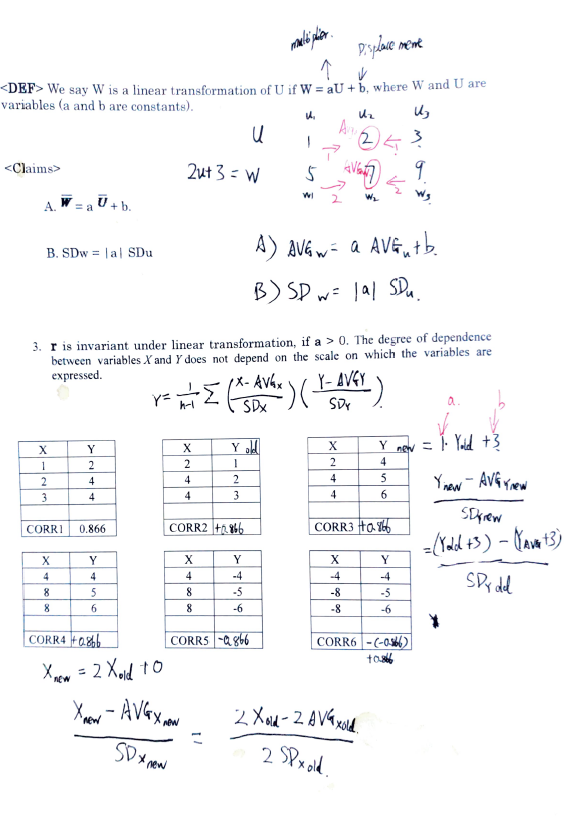 multiplier.
Displacement
<DEF> We say W is a linear transformation of U if W = aU + b, where W and U are
variables (a and b are constants).
u₁ u₂ u₃
U 1 2 3
1 1
<Claims>
2u+3 = W 5 AVG 7 9
W₁ 2 W₂ 2 W₃
A. W̅ = a U̅ + b.
A) AVGw = a AVGu + b.
B. SDw = |a| SDu
B) SDw = |a| SDu.
3. r is invariant under linear transformation, if a > 0. The degree of dependence
between variables X and Y does not depend on the scale on which the variables are
expressed.
r = 1/(n-1) Σ ((X - AVGx)/SDx) ((Y - AVGY)/SDY)
a. b
X Y
1 2
2 4
3 4
CORR1 0.866
X Y old
2 1
4 2
4 3
CORR2 +0.866
X Y new = 1·Yold + 3
2 4
4 5
4 6
CORR3 +0.866
Ynew - AVGYnew
SDYnew
= (Yold + 3) - (YAVG + 3)
SDYold
X Y
4 4
8 5
8 6
CORR4 +0.866
X Y
4 -4
8 -5
8 -6
CORR5 -0.866
X Y
-4 -4
-8 -5
-8 -6
CORR6 -(-0.866)
+0.866
Xnew = 2Xold + 0
Xnew - AVGXnew = 2Xold - 2AVGXold
SDXnew 2SDXold.